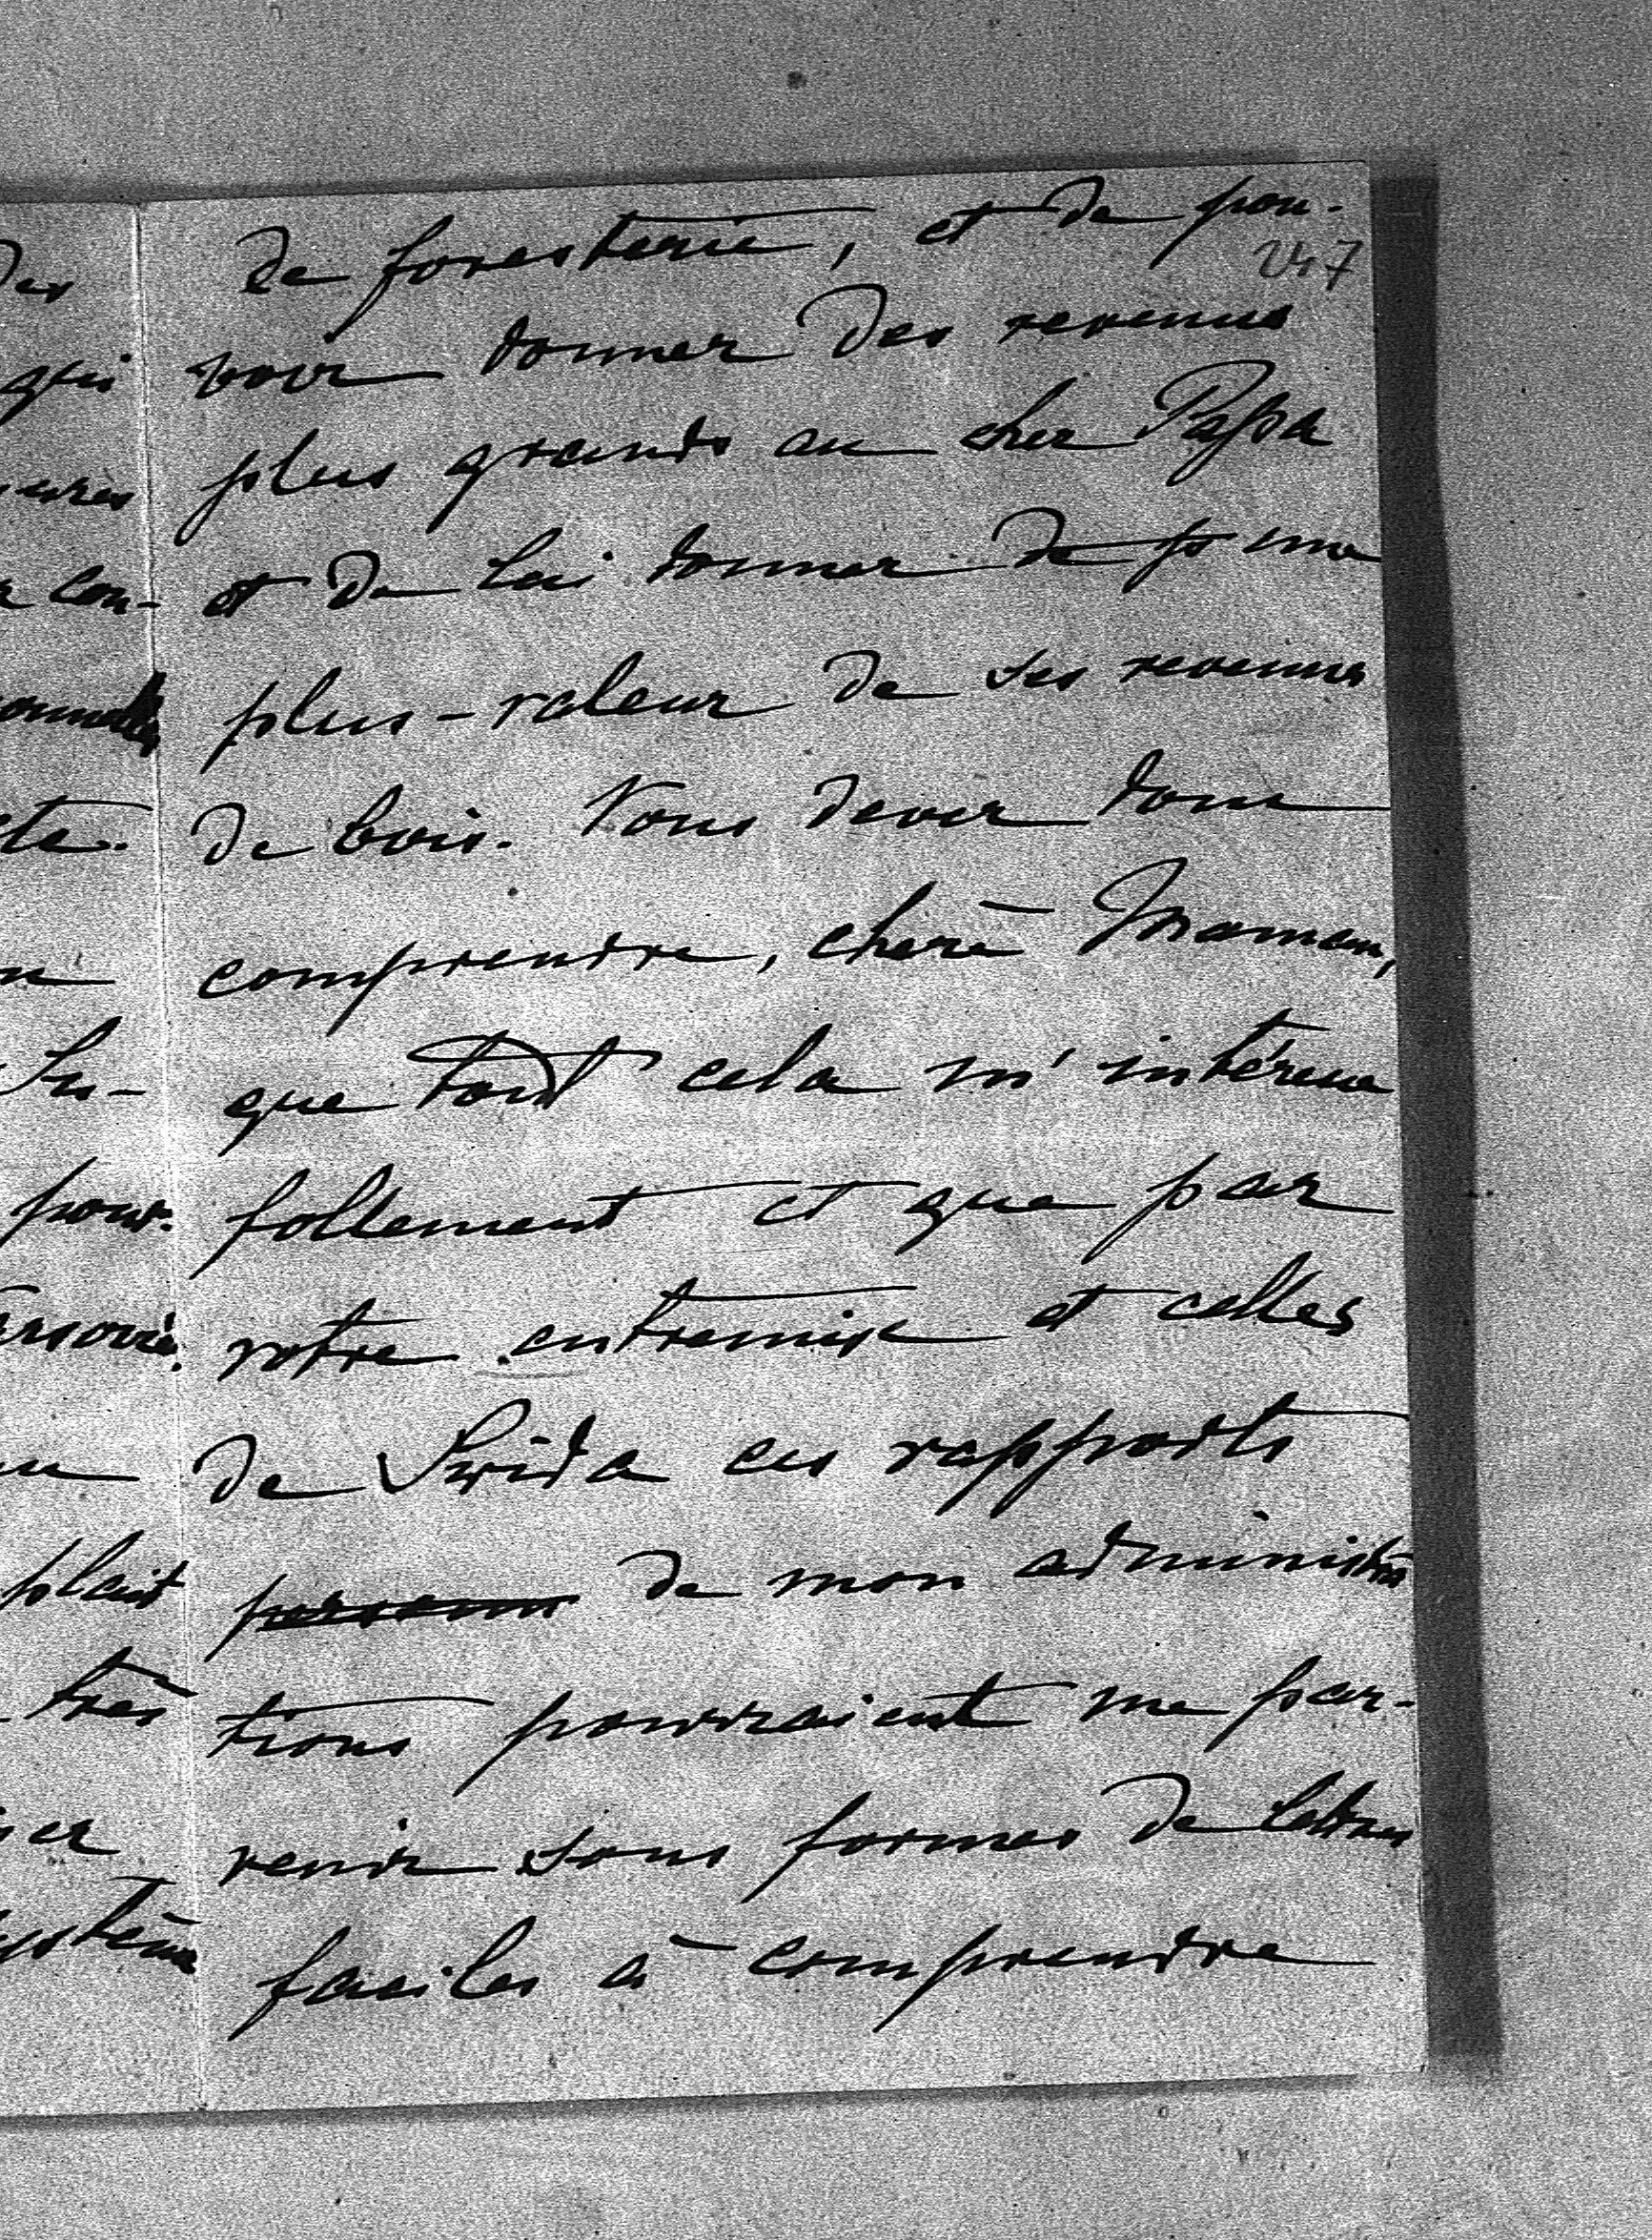 de foresterie, et de pou-
247
voir donner des revenus
plus grands au cher Papa
et de lui donner de p une
plus-valeur de ses revenus
de bois. Vous devez donc
comprendre, chère Maman,
que tout cela m'intéresse
follement et que par
votre entremise et celles
de Swida ces rapports
de mon administra
tions pourraient me par-
venir sous formes de lettres
faciles à comprendre
des
qui
con-
te.
Su-
pour
plait
très
système